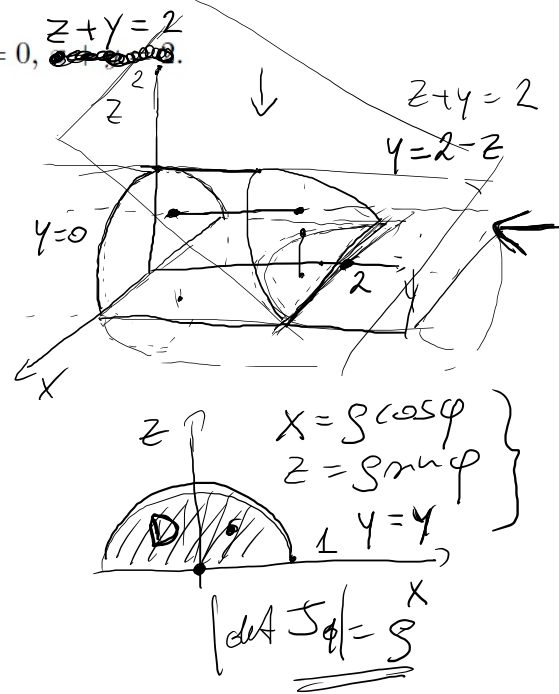 z+y=2
= 0,
2.
2
z
z+y=2
y=2-z
y=0
2
y
x
z
x=ρcosφ
z=ρsinφ
y=y
D
1
x
|det Jφ|=ρ